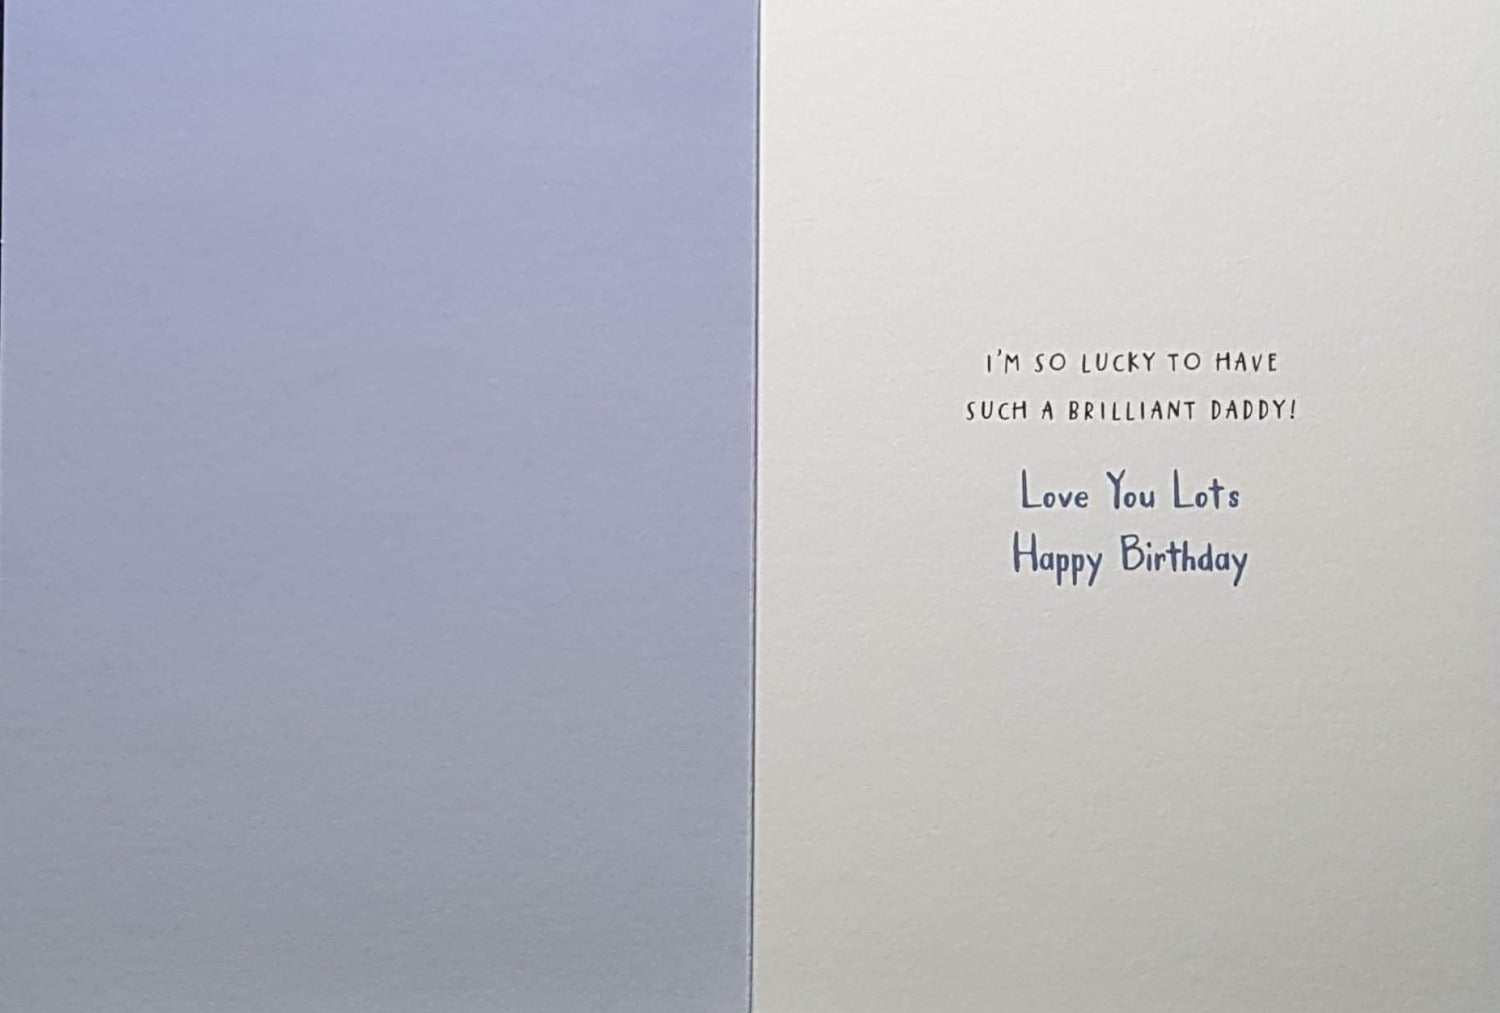 I'M SO LUCKY TO HAVE
SUCH A BRILLIANT DADDY!
Love You Lots
Happy Birthday